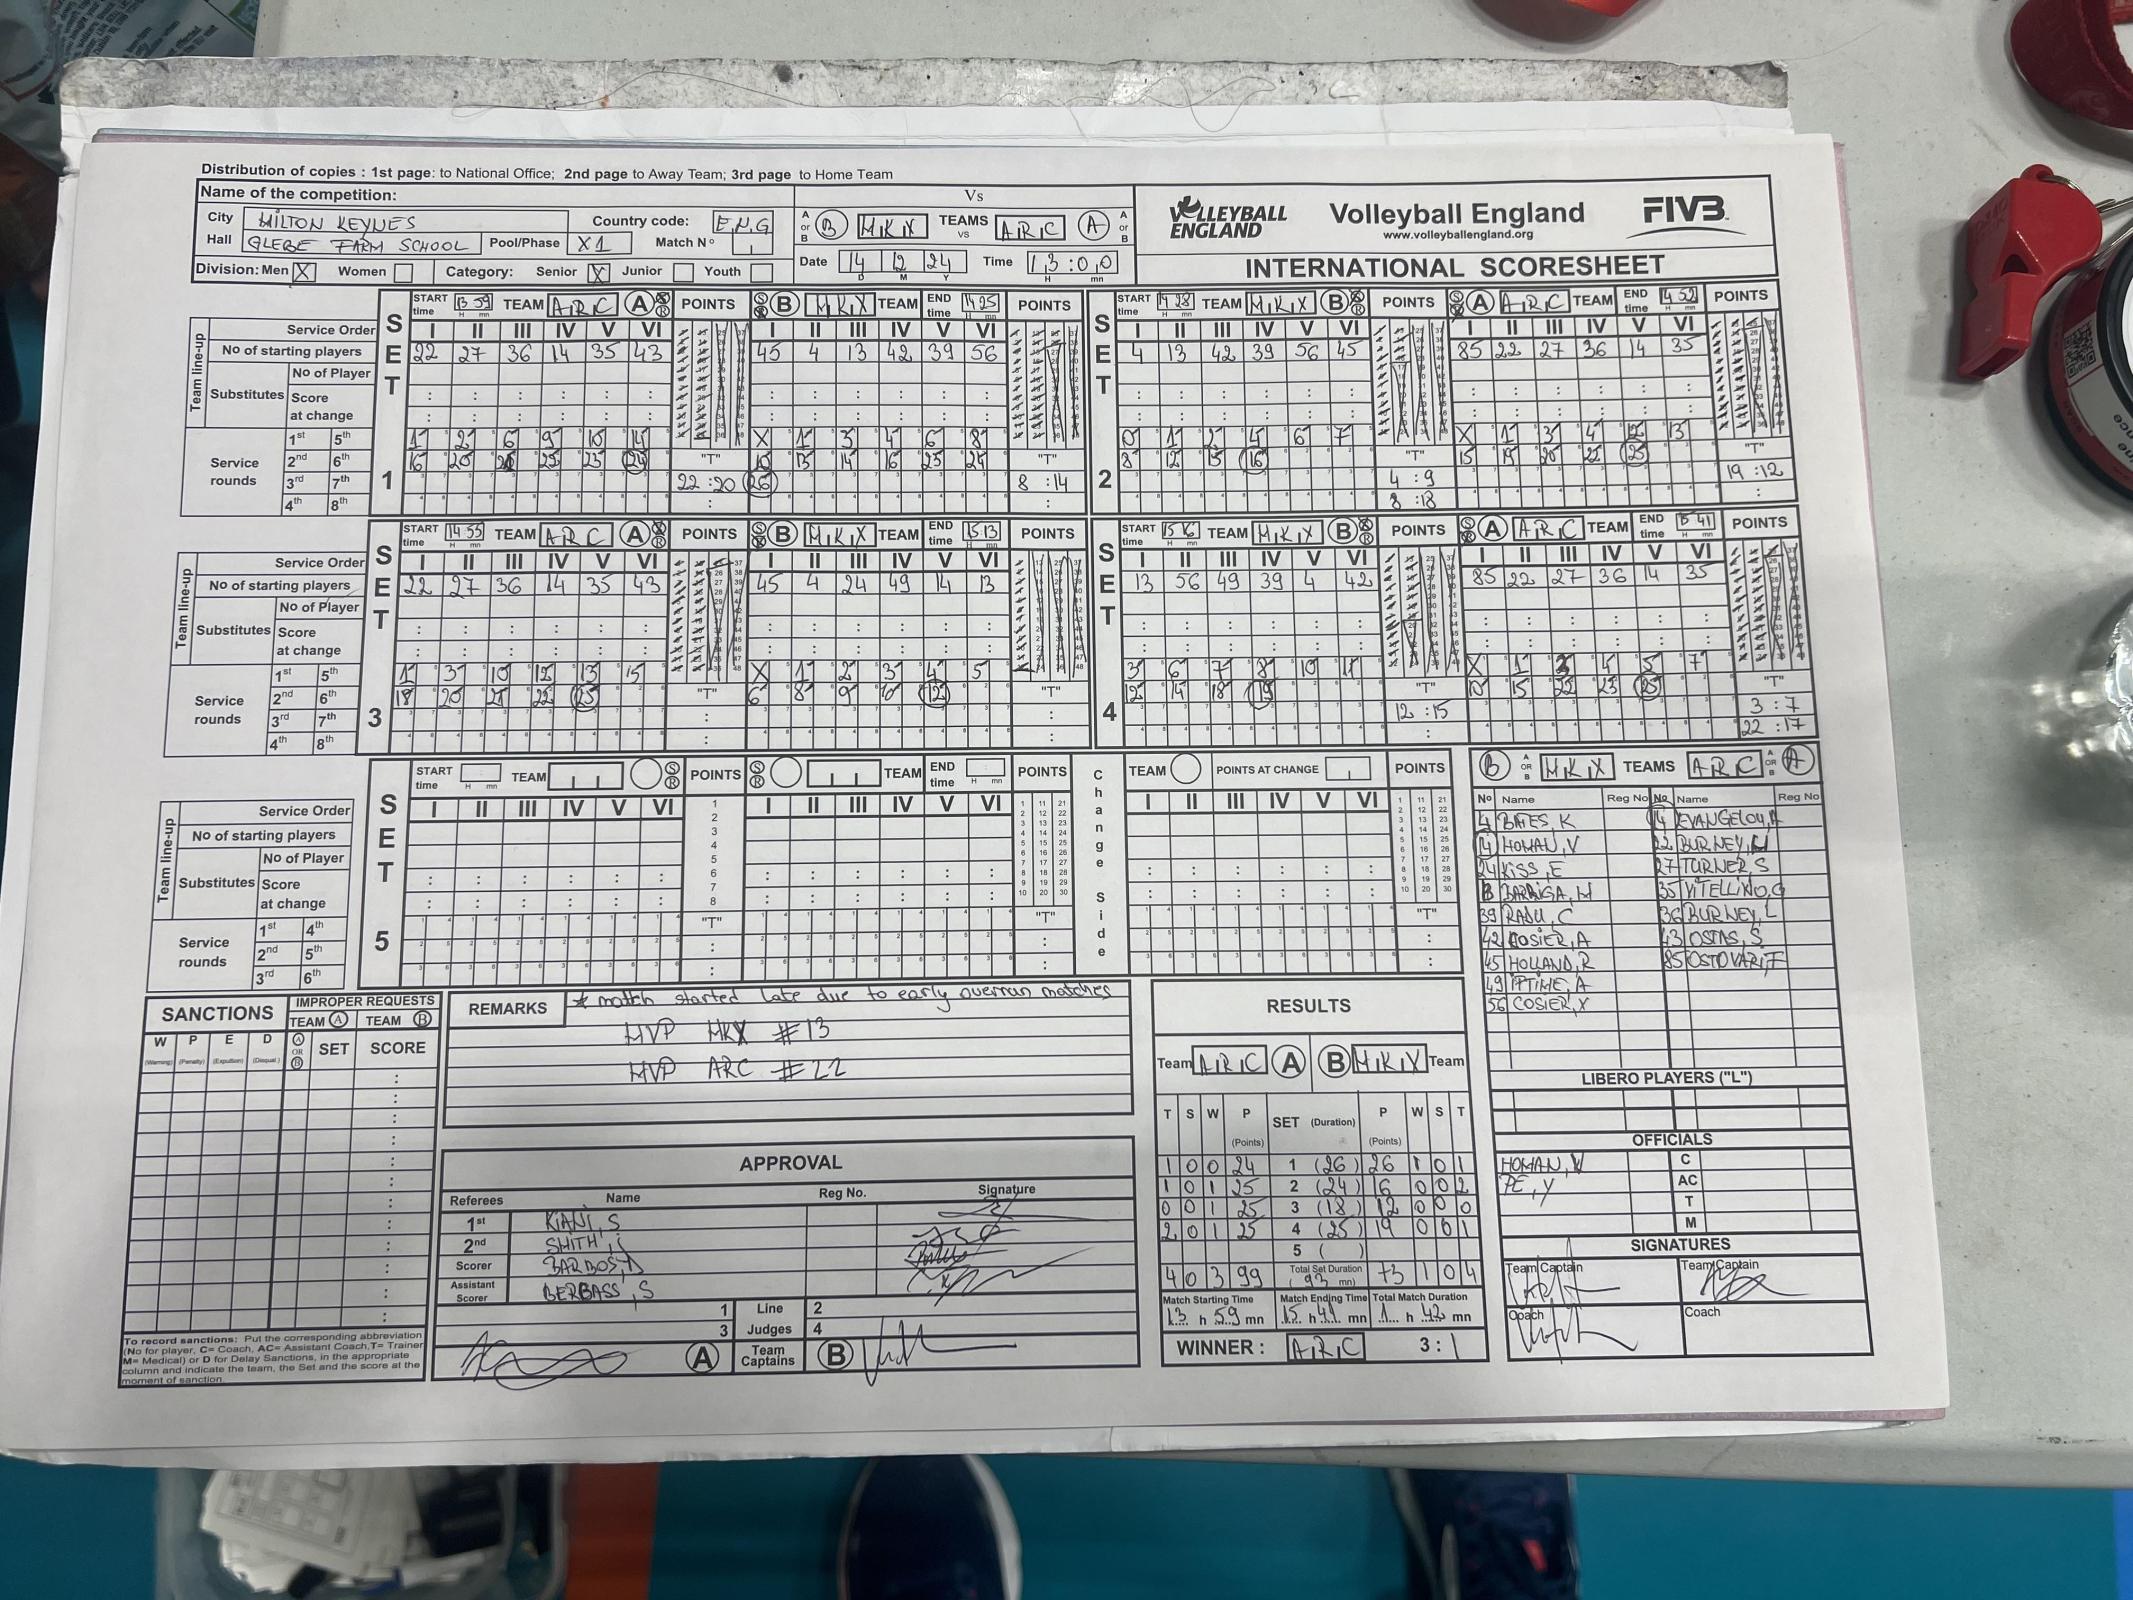 Distribution of copies : 1st page: to National Office; 2nd page to Away Team; 3rd page to Home Team
Name of the competition:
City MILTON KEYNES Country code: ENG
Hall GLEBE FARM SCHOOL Pool/Phase X1 Match Nº
Division: Men X Women Category: Senior X Junior Youth
Vs
A or B B MKX TEAMS VS ARC A A or B
Date 14 12 24 Time 13:00
D M Y H mn
VOLLEYBALL ENGLAND
Volleyball England
www.volleyballengland.org
FIVB
INTERNATIONAL SCORESHEET
SET 1
START time 13 59 TEAM ARC A POINTS B MKX TEAM END time 14 25 POINTS
Service Order I II III IV V VI I II III IV V VI
No of starting players 22 27 36 14 35 43 45 4 13 42 39 56
Team line-up
Substitutes No of Player
Score at change
Service rounds
1st 5th 1 2 6 9 10 14 X 1 3 4 6 8
2nd 6th 16 20 23 23 24 10 13 14 16 23 24
3rd 7th 26
4th 8th
"T" 22 : 20
"T" 8 : 14
SET 2
START time 14 28 TEAM MKX B POINTS A ARC TEAM END time 14 52 POINTS
I II III IV V VI I II III IV V VI
4 13 42 39 56 45 85 22 27 36 14 35
0 1 2 4 6 7 X 1 3 4 12 13
8 12 13 16 15 19 20 22 25
"T" 4 : 9
8 : 18
"T" 19 : 12
SET 3
START time 14 55 TEAM ARC A POINTS B MKX TEAM END time 15 13 POINTS
Service Order I II III IV V VI I II III IV V VI
No of starting players 22 27 36 14 35 43 45 4 24 49 14 13
Team line-up
Substitutes No of Player
Score at change
Service rounds
1st 5th 1 3 10 12 13 15 X 1 2 3 4 5
2nd 6th 18 20 21 22 25 6 8 9 10 12
3rd 7th
4th 8th
"T" "T"
SET 4
START time 15 16 TEAM MKX B POINTS A ARC TEAM END time 15 41 POINTS
I II III IV V VI I II III IV V VI
13 56 49 39 4 42 85 22 27 36 14 35
3 6 7 8 10 11 X 1 3 4 5 7
12 14 18 19 10 15 22 23 25
"T" 12 : 15
"T" 3 : 7
22 : 17
SET 5
START time TEAM POINTS TEAM END time POINTS
Change Side
TEAM POINTS AT CHANGE POINTS
Service Order I II III IV V VI I II III IV V VI I II III IV V VI
No of starting players
Team line-up
Substitutes No of Player
Score at change
Service rounds
1st 4th
2nd 5th
3rd 6th
"T" "T" "T"
B A OR B MKX TEAMS ARC A OR B A
Nº Name Reg No Nº Name Reg No
4 BATES, K 14
14 HOMAN, V 22 BURNEY,
24 KISS, E 27 TURNER, S
13 BARRIGA, M 35 VITELLINO, G
39 RADU, C 36 BURNEY, L
42 COSIER, A 43 OSTAS, S
45 HOLLAND, R 85 OSTOVARI, F
49
56 COSIER, X
LIBERO PLAYERS ("L")
OFFICIALS
HOMAN, V C
PE, Y AC
T
M
SIGNATURES
Team Captain Team Captain
Coach Coach
SANCTIONS
IMPROPER REQUESTS
TEAM A TEAM B
W P E D A OR B SET SCORE
(Warning) (Penalty) (Expultion) (Disqual.)
To record sanctions: Put the corresponding abbreviation
(No for player, C= Coach, AC= Assistant Coach, T= Trainer
M= Medical) or D for Delay Sanctions, in the appropriate
column and indicate the team, the Set and the score at the
moment of sanction.
REMARKS * match started late due to early overran matches
MVP MKX #13
MVP ARC #22
APPROVAL
Referees Name Reg No. Signature
1st KIANI, S
2nd SMITH, J
Scorer BARBOS,
Assistant Scorer BERBASS, S
1 Line 2
3 Judges 4
A Team Captains B
RESULTS
Team ARC A B MKX Team
T S W P (Points) SET (Duration) P (Points) W S T
1 0 0 24 1 (26) 26 1 0 1
1 0 1 25 2 (24) 16 0 0 2
0 0 1 25 3 (18) 12 0 0 0
2 0 1 25 4 (25) 19 0 0 1
5 ( )
4 0 3 99 Total Set Duration (93 mn) 73 1 0 4
Match Starting Time Match Ending Time Total Match Duration
13 h 59 mn 15 h 41 mn 1 h 42 mn
WINNER : ARC 3 : 1